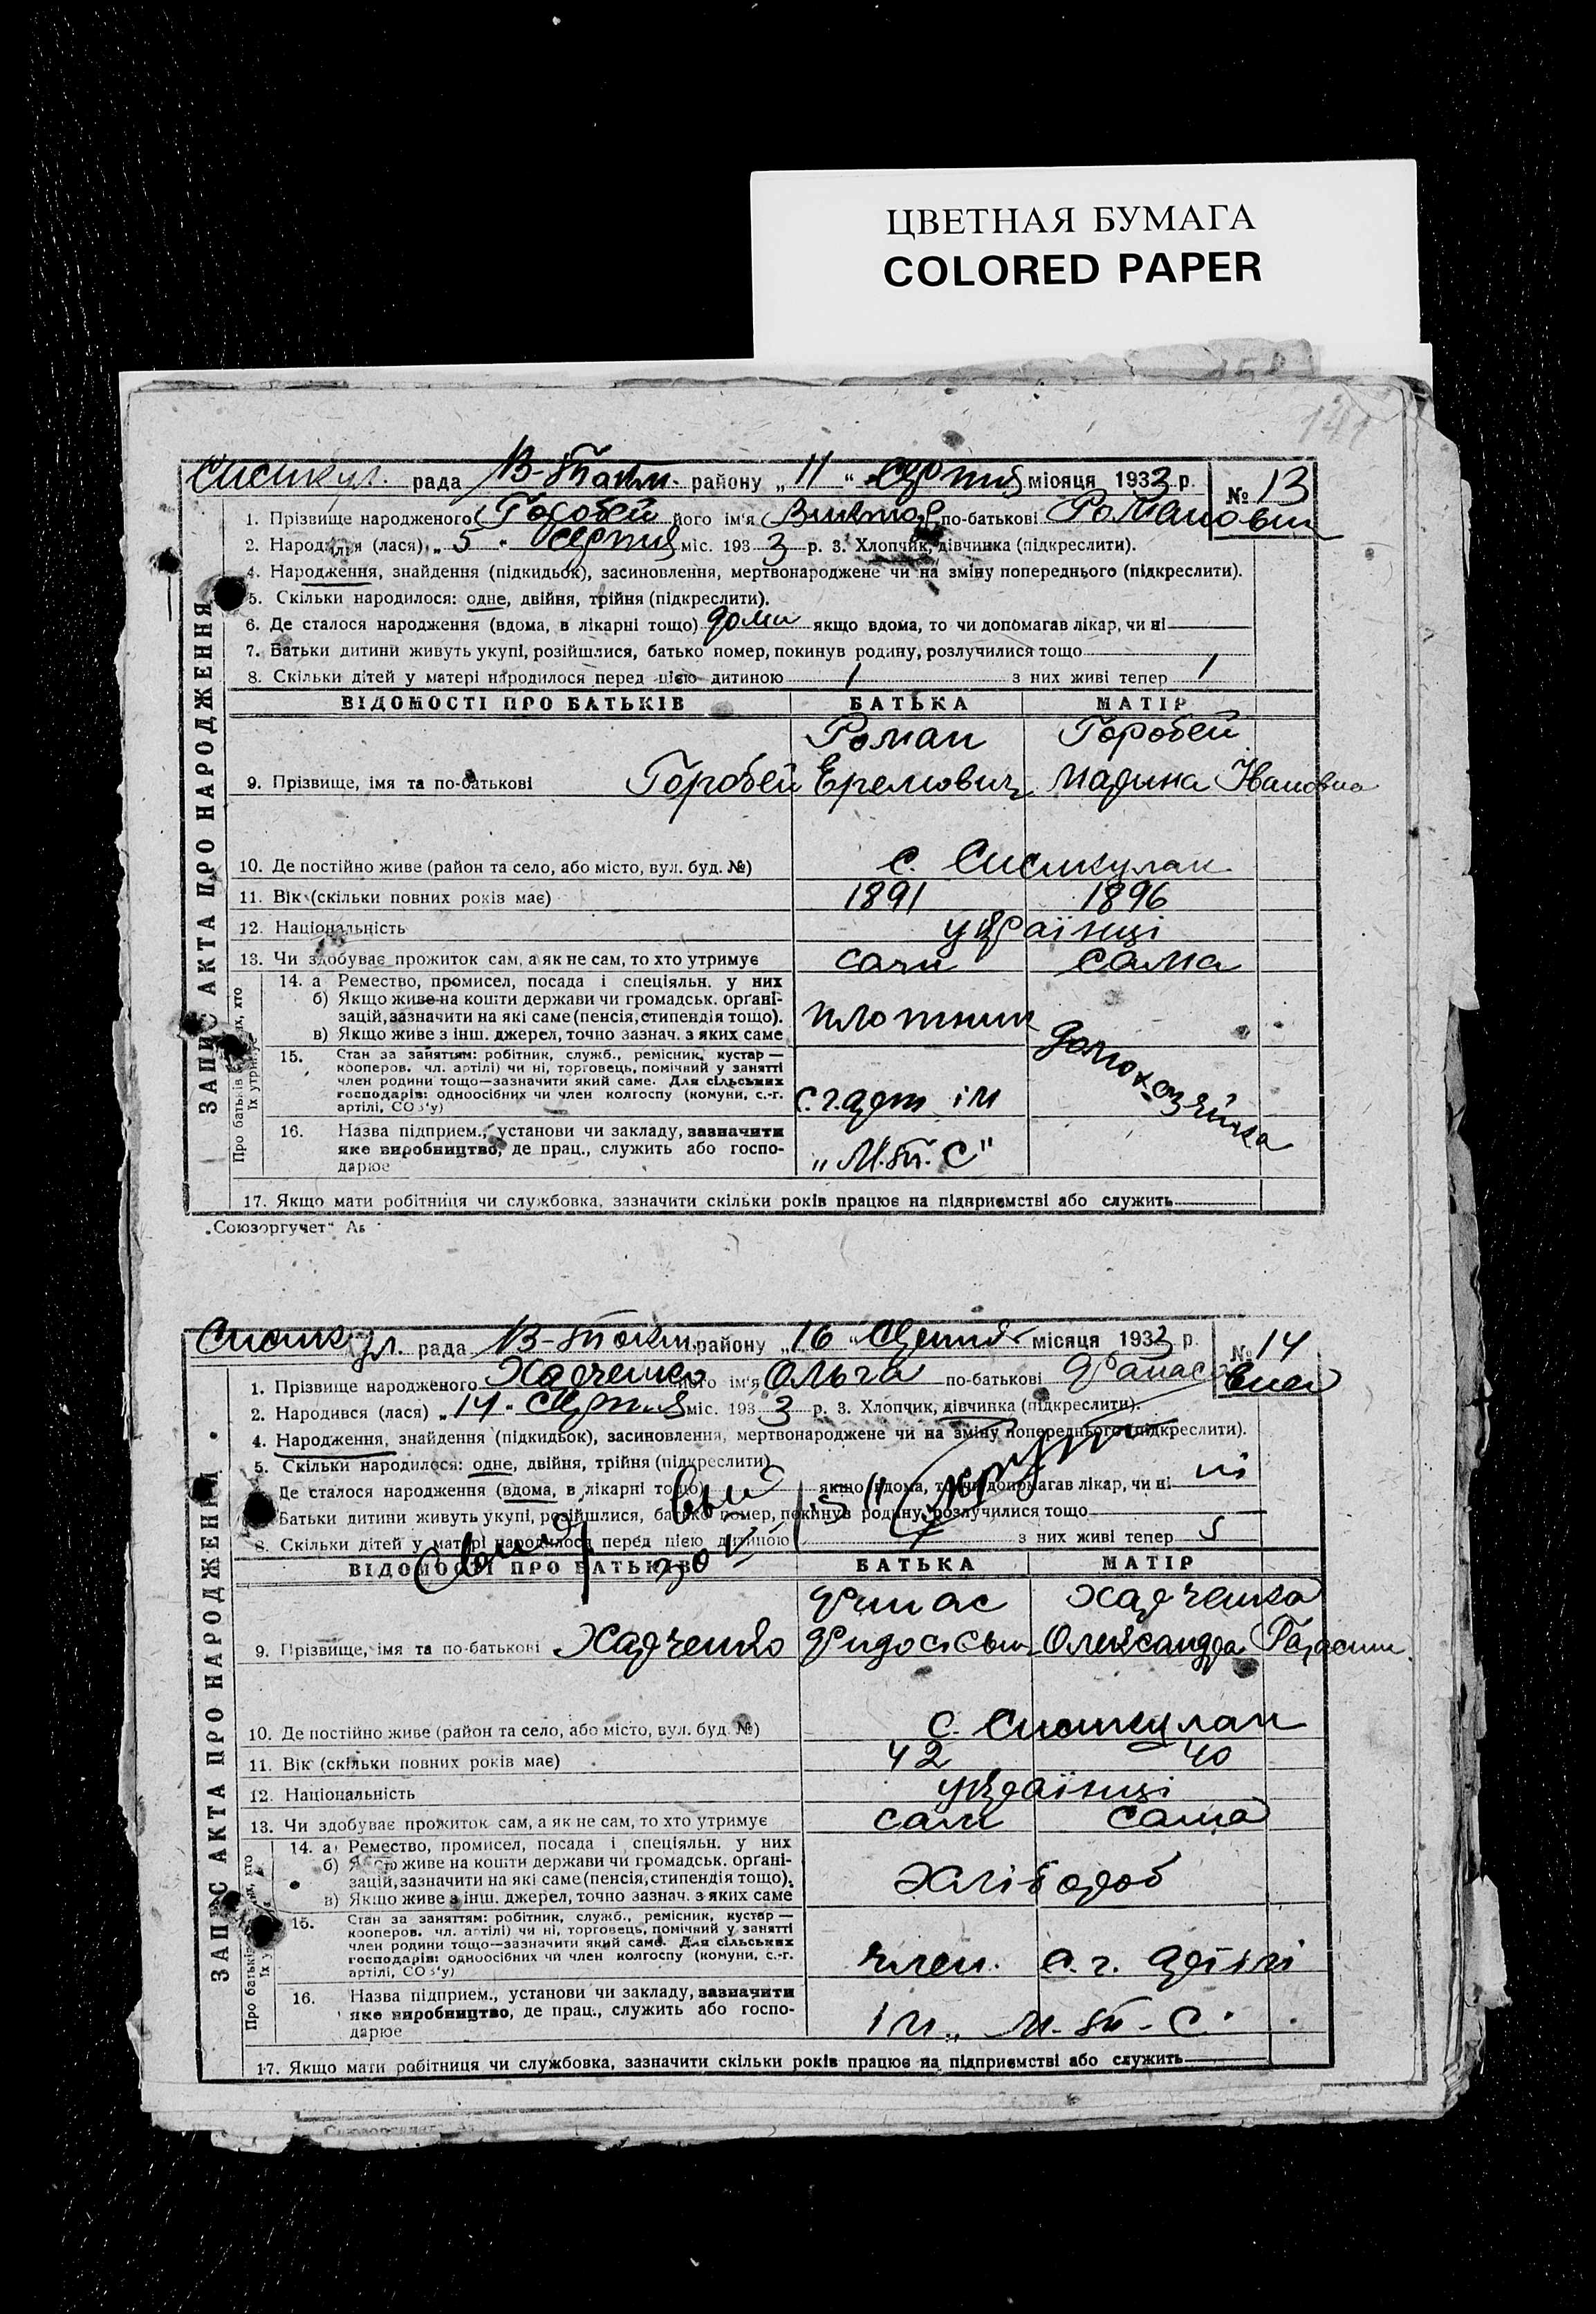 ЦВЕТНАЯ БУМАГА
COLORED PAPER
141
Сисикул. рада В-Токм. району „11“ Серпня місяця 1933 р. № 13
ЗАПИС АКТА ПРО НАРОДЖЕННЯ
1. Прізвище народженого Горобей його ім'я Виктор по-батькові Романович
2. Народився (лася) „5“ серпня міс. 1933 р. 3. Хлопчик, дівчинка (підкреслити).
4. Народження, знайдення (підкидьок), засиновлення, мертвонароджене чи на зміну попереднього (підкреслити).
5. Скільки народилося: одне, двійня, трійня (підкреслити).
6. Де сталося народження (вдома, в лікарні тощо) дома якщо вдома, то чи допомагав лікар, чи ні
7. Батьки дитини живуть укупі, розійшлися, батько помер, покинув родину, розлучилися тощо
8. Скільки дітей у матері народилося перед цією дитиною 1 з них живі тепер 1
ВІДОМОСТІ ПРО БАТЬКІВ БАТЬКА МАТІР
Роман Горобей
9. Прізвище, імя та по-батькові Горобей Еремович Марина Івановна
10. Де постійно живе (район та село, або місто, вул. буд. №) с. Сисикулак
11. Вік (скільки повних років має) 1891 1896
12. Національність українці
13. Чи здобуває прожиток сам, а як не сам, то хто утримує сами сама
Про батьків
їх утримує
14. а Ремество, промисел, посада і спеціяльн. у них
б) Якщо живе на кошти держави чи громадськ. орґані-
зацій, зазначити на які саме (пенсія, стипендія тощо).
в) Якщо живе з інш. джерел, точно зазнач. з яких саме
плотник
домохозяйка
15. Стан за заняттям: робітник, служб., ремісник, кустар —
кооперов. чл. артілі) чи ні, торговець, помічний у занятті
член родини тощо—зазначити який саме. Для сільських
господарів: одноосібних чи член колгоспу (комуни, с.-г.
артілі, СОЗ'у)
с.г. арт ім
16. Назва підприєм., установи чи закладу, зазначити
яке виробництво, де прац., служить або госпо-
дарює
„М.т.С“
17. Якщо мати робітниця чи службовка, зазначити скільки років працює на підприємстві або служить
„Союзоргучет“
Сисикул. рада В-Токм. району „16“ Серпня місяця 1933 р. № 14
ЗАПИС АКТА ПРО НАРОДЖЕННЯ
1. Прізвище народженого Харченко його ім'я Ольга по-батькові
2. Народився (лася) „14“ Серпня міс. 1933 р. 3. Хлопчик, дівчинка (підкреслити).
4. Народження, знайдення (підкидьок), засиновлення, мертвонароджене чи на зміну попереднього (підкреслити).
5. Скільки народилося: одне, двійня, трійня (підкреслити)
Де сталося народження (вдома, в лікарні тощо) якщо вдома, то чи допомагав лікар, чи ні ні
Батьки дитини живуть укупі, розійшлися, батько помер, покинув родину, розлучилися тощо
8. Скільки дітей у матері народилося перед цією дитиною 7 з них живі тепер 5
ВІДОМОСТІ ПРО БАТЬКІВ БАТЬКА МАТІР
Харченко
9. Прізвище, імя та по-батькові Харченко Олександра Гарасим.
10. Де постійно живе (район та село, або місто, вул. буд. №) с. Сисикулак
11. Вік (скільки повних років має) 42 40
12. Національність українці
13. Чи здобуває прожиток сам, а як не сам, то хто утримує сам сама
Про батьків
14. а) Ремество, промисел, посада і спеціяльн. у них
б) Якщо живе на кошти держави чи громадськ. орґані-
зацій, зазначити на які саме (пенсія, стипендія тощо).
в) Якщо живе з інш. джерел, точно зазнач. з яких саме
Хлібороб
15. Стан за заняттям: робітник, служб., ремісник, кустар —
кооперов. чл. артілі) чи ні, торговець, помічний у занятті
член родини тощо—зазначити який саме. Для сільських
господарів: одноосібних чи член колгоспу (комуни, с.-г.
артілі, СОЗ'у)
член. с. г. артілі
16. Назва підприєм., установи чи закладу, зазначити
яке виробництво, де прац., служить або госпо-
дарює
ім „М.т.С.
17. Якщо мати робітниця чи службовка, зазначити скільки років працює на підприємстві або служить